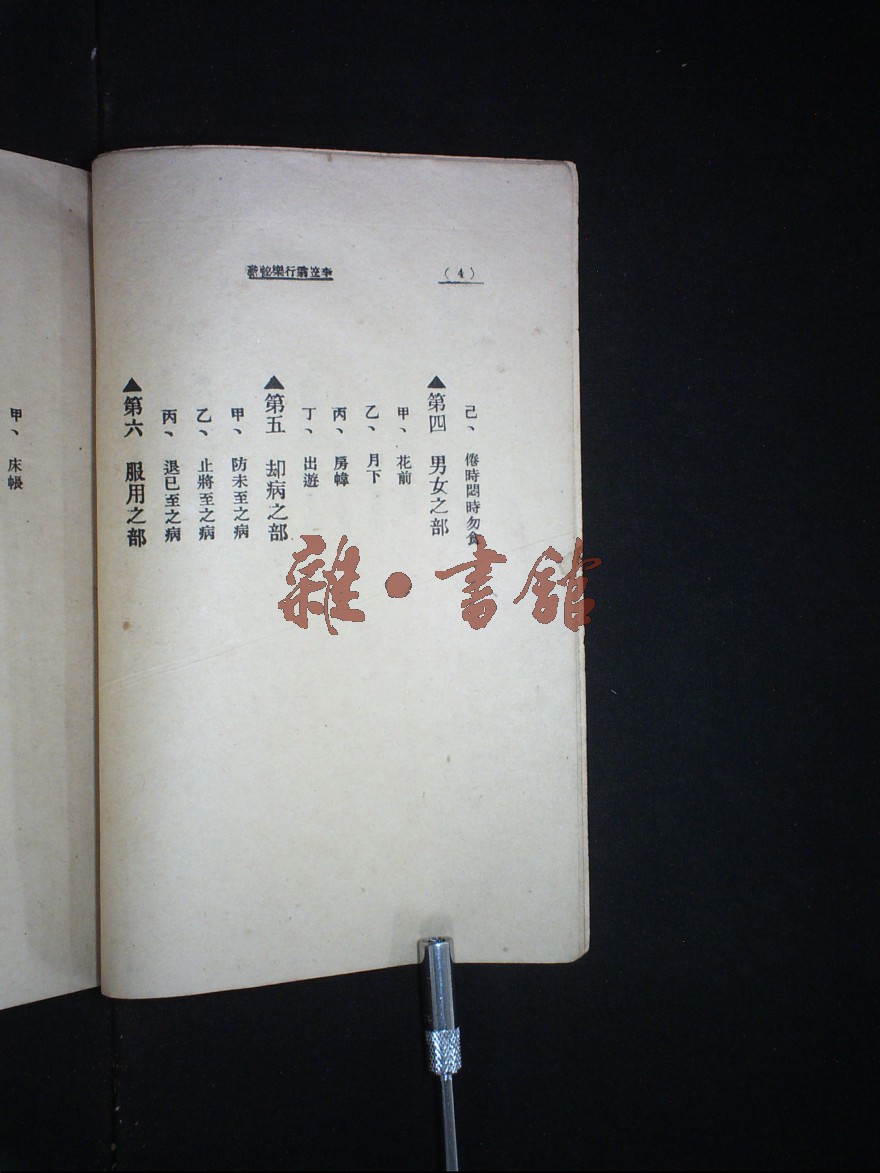 （4）
李笠翁行樂秘訣
己、倦時悶時勿食
▲第四 男女之部
甲、花前
乙、月下
丙、房幃
丁、出遊
▲第五 却病之部
甲、防未至之病
乙、止將至之病
丙、退已至之病
▲第六 服用之部
甲、床帳
雜·書舘